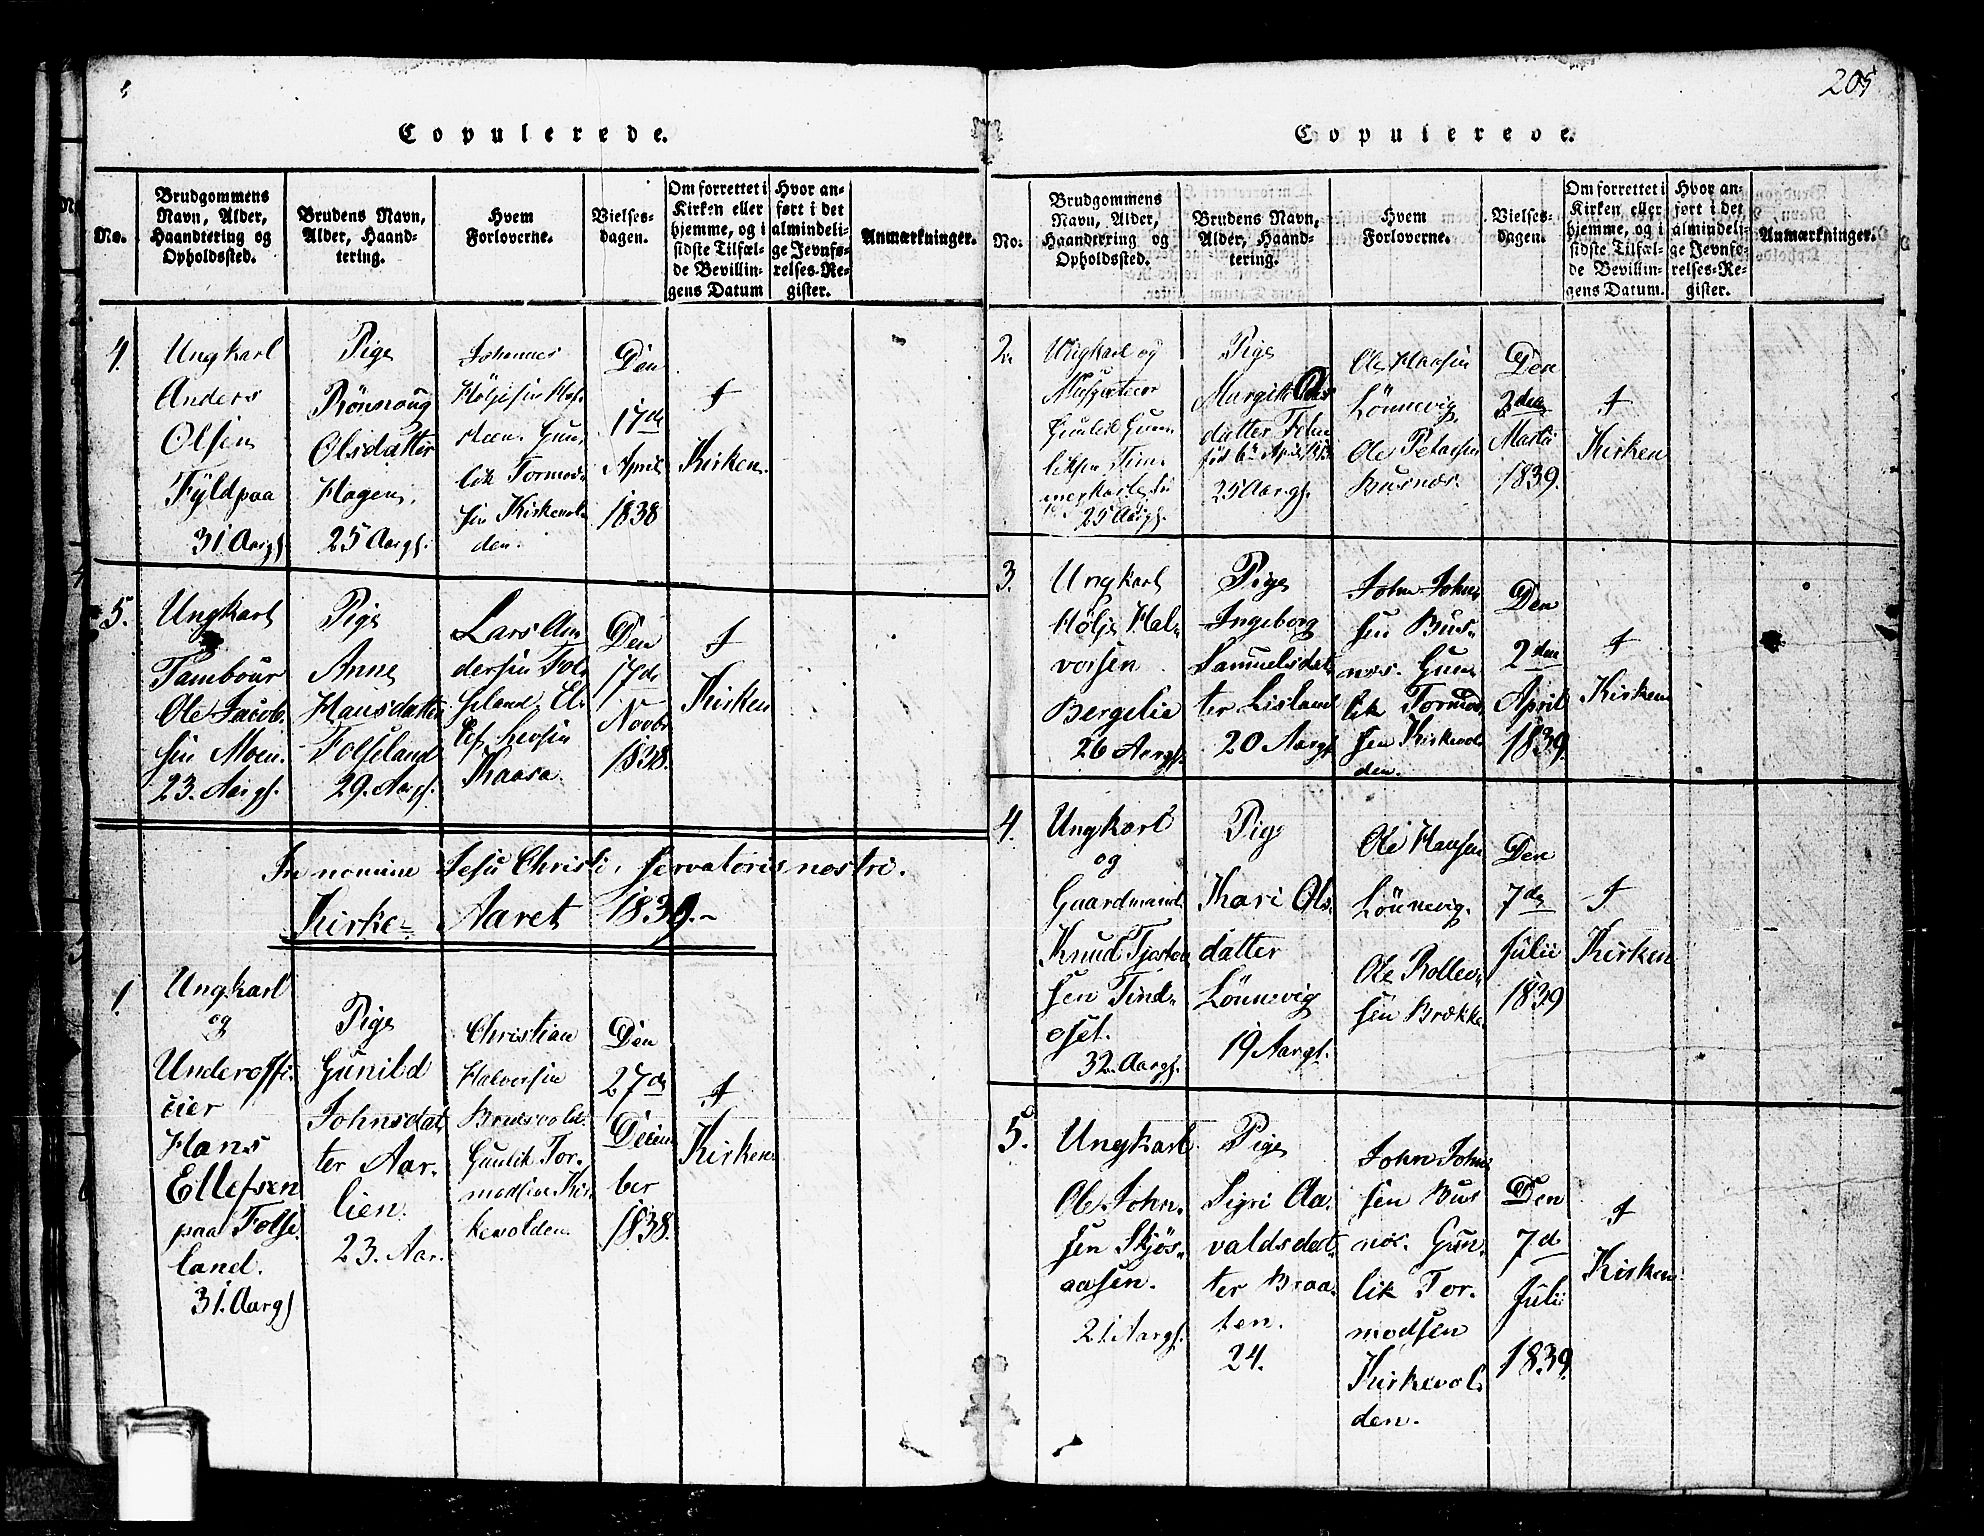 Copulerede.
No.
Brudgommens Navn, Alder, Haandtering og Opholdssted.
Brudens Navn, Alder, Haandtering.
Hvem Forloverne.
Vielsesdagen.
Om forrettet i Kirken eller hjemme, og i sidste Tilfælde Bevillingens Datum
Hvor anført i det almindelige Jevnførelses-Register.
Anmærkninger.
4.
Ungkarl
Anders
Olsen
Fyldpaa
31 Aargl.
Pige
Rönnoug
Olsdatter
Hagen,
25 Aargl.
Johannes
Höljesen
Gun-
lik Tormod-
sen Kirkevol-
den.
Den
17de
April
1838
I
Kirken.
5.
Ungkarl
Tambour
Ole Jacob-
sen Moen.
23. Aargl.
Pige
Anne
Hansdatter
Folseland
29. Aargl.
Lars An-
dersen Fol-
seland, El-
lef
Kaasa.
Den
17de
Novbr
1838.
I
Kirken
In nomine Jesu Christi, servatoris nostri.
Kirke- Aaret 1839.-
1.
Ungkarl
og
Underoffi-
cier
Hans
Ellefsen
paa Folse-
land.
31. Aargl
Pige
Gunild
Johnsdat-
ter Aar-
lien.
23. Aar.
Christian
Halvorsen
Gunlik Tor-
modsen Kir-
kevolden.
Den
27de
Decem-
ber
1838.
I
Kirken
205
Copulerede.
No.
Brudgommens Navn, Alder, Haandtering og Opholdssted.
Brudens Navn, Alder, Haandtering.
Hvem Forloverne.
Vielsesdagen.
Om forrettet i Kirken eller hjemme, og i sidste Tilfælde Bevillingens Datum.
Hvor anført i det almindelige Jevnførelses-Register.
Anmærkninger.
2.
Ungkarl og
Gunlik Gun-
25 Aargl.
Pige
Margith Ols-
datter
25 Aargl.
Ole Hansen
Lönnevig,
Ole
Busnes.
Den
2den
Martii
1839.
I
Kirken
3.
Ungkarl
Hölje Hal-
vorsen
Bergelie
26 Aargl.
Pige
Ingeborg
Samuelsdat-
ter Lisland
20 Aargl.
John John-
sen Bus-
nes. Gun-
lik Tormod-
sen Kirkevol-
den.
Den
2den
April
1839.
I
Kirken
4.
Ungkarl
og
Gaardmand
Knud Tjosten-
sen Tind-
oset.
32. Aargl.
Pige
Kari Ols-
datter
Lönnevig
19 Aargl.
Ole Hansen
Lönnevig.
Ole Rollev-
sen Brække.
Den
7de
Julii
1839
I
Kirken
5.
Ungkarl
Ole John-
sen Skjös-
aasen.
21 Aargl.
Pige
Sigri Aa-
valdsdat-
ter Braa-
ten.
24.
John John-
sen Bus-
nes. Gun-
lik Tor-
modsen
Kirkevol-
den.
Den
7de
Julii
1839.
I
Kirken